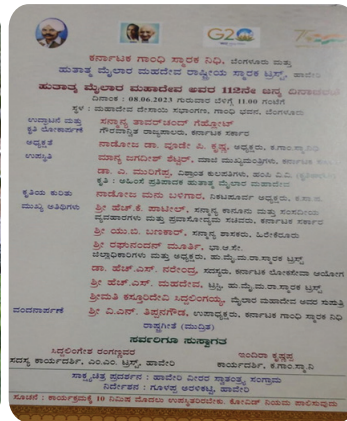 G20
ಕರ್ನಾಟಕ ಗಾಂಧಿ ಸ್ಮಾರಕ ನಿಧಿ, ಬೆಂಗಳೂರು ಮತ್ತು
ಹುತಾತ್ಮ ಮೈಲಾರ ಮಹದೇವ ರಾಷ್ಟ್ರೀಯ ಸ್ಮಾರಕ ಟ್ರಸ್ಟ್, ಹಾವೇರಿ
ಹುತಾತ್ಮ ಮೈಲಾರ ಮಹಾದೇವ ಅವರ 112ನೇ ಜನ್ಮ ದಿನಾಚರಣೆ
ದಿನಾಂಕ : 08.06.2023 ಗುರುವಾರ ಬೆಳಿಗ್ಗೆ 11.00 ಗಂಟೆಗೆ
ಸ್ಥಳ : ಮಹಾದೇವ ದೇಸಾಯಿ ಸಭಾಂಗಣ, ಗಾಂಧಿ ಭವನ, ಬೆಂಗಳೂರು
ಉದ್ಘಾಟನೆ ಮತ್ತು ಸನ್ಮಾನ್ಯ ತಾವರ್‌ಚಂದ್ ಗೆಹ್ಲೋಟ್
ಕೃತಿ ಲೋಕಾರ್ಪಣೆ ಗೌರವಾನ್ವಿತ ರಾಜ್ಯಪಾಲರು, ಕರ್ನಾಟಕ ಸರ್ಕಾರ
ಅಧ್ಯಕ್ಷತೆ ನಾಡೋಜ ಡಾ. ವೂಡೇ ಪಿ. ಕೃಷ್ಣ, ಅಧ್ಯಕ್ಷರು, ಕ.ಗಾಂ.ಸ್ಮಾ.ನಿ
ಉಪಸ್ಥಿತಿ ಮಾನ್ಯ ಜಗದೀಶ್ ಶೆಟ್ಟರ್, ಮಾಜಿ ಮುಖ್ಯಮಂತ್ರಿಗಳು, ಕರ್ನಾಟಕ
ಡಾ. ಎ. ಮುರಿಗೆಪ್ಪ, ವಿಶ್ರಾಂತ ಕುಲಪತಿಗಳು, ಹಂಪಿ ವಿ.ವಿ
ಕೃತಿ : ಅಹಿಂಸೆ ಪ್ರತಿಪಾದಕ ಹುತಾತ್ಮ ಮೈಲಾರ ಮಹಾದೇವ
ಕೃತಿಯ ಕುರಿತು ನಾಡೋಜ ಮನು ಬಳಿಗಾರ, ನಿಕಟಪೂರ್ವ ಅಧ್ಯಕ್ಷರು, ಕ.ಸಾ.ಪ.
ಮುಖ್ಯ ಅತಿಥಿಗಳು ಶ್ರೀ ಹೆಚ್.ಕೆ. ಪಾಟೀಲ್, ಸನ್ಮಾನ್ಯ ಕಾನೂನು ಮತ್ತು ಸಂಸದೀಯ
ವ್ಯವಹಾರಗಳು ಮತ್ತು ಪ್ರವಾಸೋದ್ಯಮ ಸಚಿವರು, ಕರ್ನಾಟಕ ಸರ್ಕಾರ
ಶ್ರೀ ಯು.ಬಿ. ಬಣಕಾರ್, ಸನ್ಮಾನ್ಯ ಶಾಸಕರು, ಹಿರೇಕೆರೂರು
ಶ್ರೀ ರಘುನಂದನ್ ಮೂರ್ತಿ, ಭಾ.ಆ.ಸೇ.
ಜಿಲ್ಲಾಧಿಕಾರಿಗಳು ಮತ್ತು ಅಧ್ಯಕ್ಷರು, ಹು.ಮೈ.ಮ.ರಾ.ಸ್ಮಾರಕ ಟ್ರಸ್ಟ್
ಡಾ. ಹೆಚ್.ಎಸ್. ನರೇಂದ್ರ, ಸದಸ್ಯರು, ಕರ್ನಾಟಕ ಲೋಕಸೇವಾ ಆಯೋಗ
ಶ್ರೀ ಹೆಚ್.ಎಸ್. ಮಹದೇವ, ಟ್ರಸ್ಟಿ, ಹು.ಮೈ.ಮ.ರಾ.ಸ್ಮಾರಕ ಟ್ರಸ್ಟ್
ಶ್ರೀಮತಿ ಕಸ್ತೂರಿದೇವಿ ಸಿದ್ದಲಿಂಗಯ್ಯ, ಮೈಲಾರ ಮಹಾದೇವ ಅವರ ಸುಪುತ್ರಿ
ವಂದನಾರ್ಪಣೆ ಶ್ರೀ ವಿ.ಎನ್. ತಿಪ್ಪನಗೌಡ, ಉಪಾಧ್ಯಕ್ಷರು, ಕರ್ನಾಟಕ ಗಾಂಧಿ ಸ್ಮಾರಕ ನಿಧಿ
ರಾಷ್ಟ್ರಗೀತೆ (ಮುದ್ರಿತ)
ಸರ್ವರಿಗೂ ಸುಸ್ವಾಗತ
ಸಿದ್ಧಲಿಂಗೇಶ ರಂಗಣ್ಣವರ ಇಂದಿರಾ ಕೃಷ್ಣಪ್ಪ
ಸದಸ್ಯ ಕಾರ್ಯದರ್ಶಿ, ಎಂ.ಎಂ. ಟ್ರಸ್ಟ್, ಹಾವೇರಿ ಕಾರ್ಯದರ್ಶಿ, ಕ.ಗಾಂ.ಸ್ಮಾ.ನಿ
ಸಾಕ್ಷ್ಯಚಿತ್ರ ಪ್ರದರ್ಶನ : ಹಾವೇರಿ ವೀರರ ಸ್ವಾತಂತ್ರ್ಯ ಸಂಗ್ರಾಮ
ನಿರ್ದೇಶನ : ಗೂಳಪ್ಪ ಅರಳಿಕಟ್ಟಿ, ಹಾವೇರಿ
ಸೂಚನೆ : ಕಾರ್ಯಕ್ರಮಕ್ಕೆ 10 ನಿಮಿಷ ಮೊದಲು ಉಪಸ್ಥಿತರಿರಬೇಕು. ಕೋವಿಡ್ ನಿಯಮ ಪಾಲಿಸುವುದು